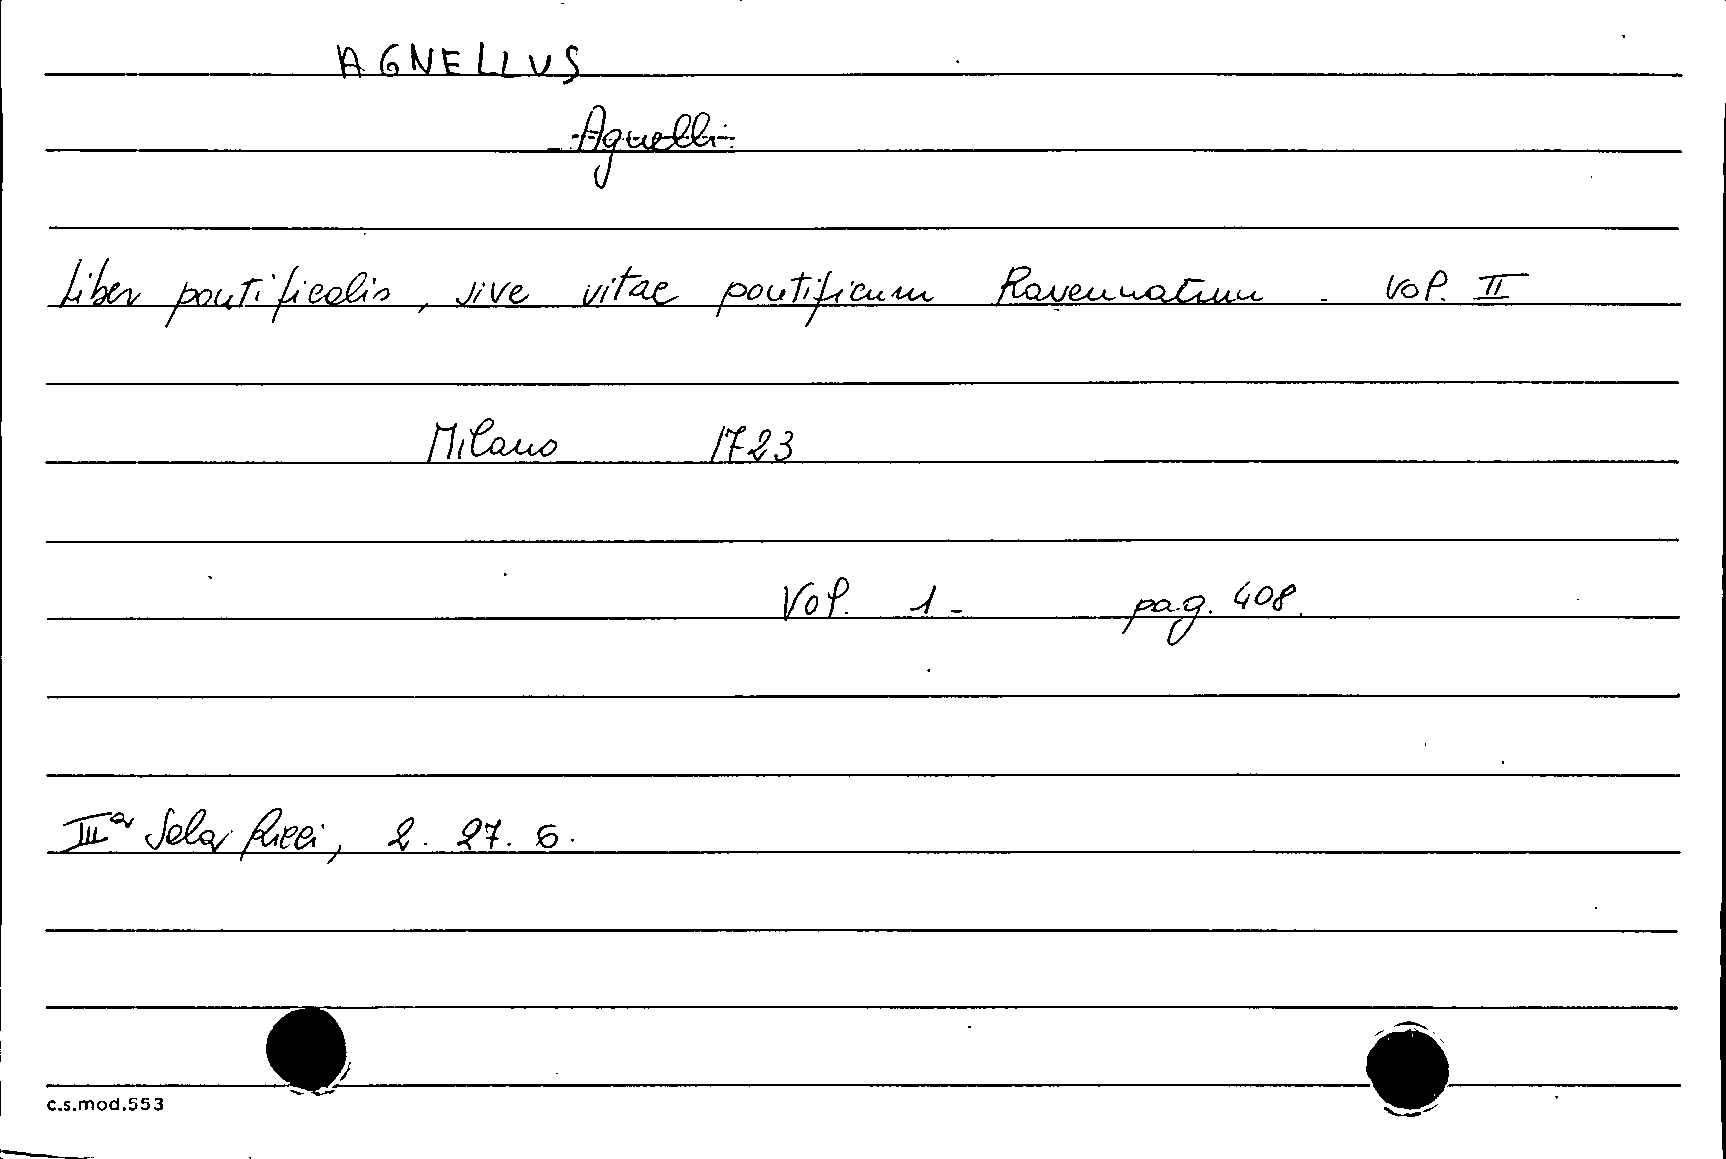 AGNELLUS
Agnelli
Liber pontificalis, sive vitae pontificum Ravennatum. Vol. II
Milano 1723
Vol. 1- pag. 408.
IIIa Sala Ricci, 2. 27. 6.
c.s.mod.553